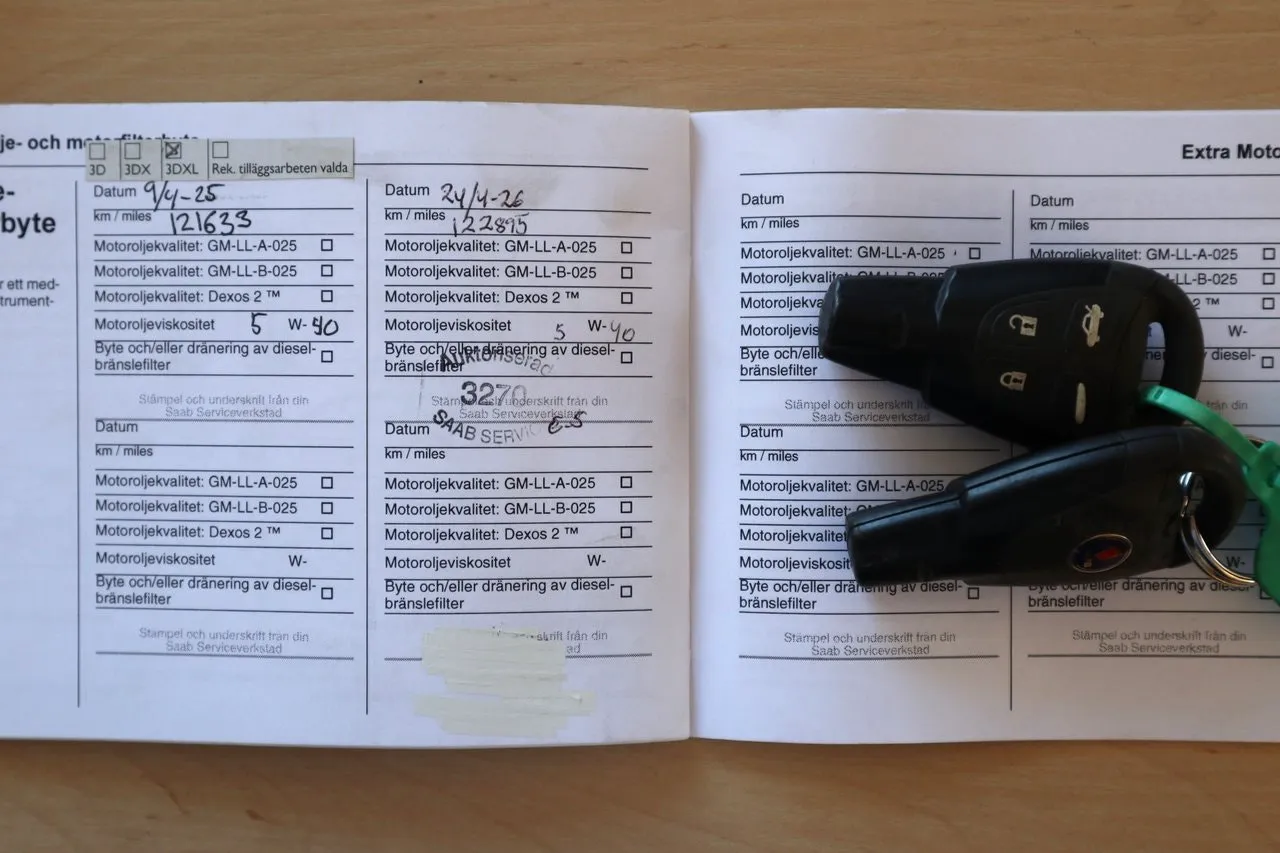 je- och motorfilterbyte
3D 3DX 3DXL Rek. tilläggsarbeten valda
e-
byte
r ett med-
trument-
Datum 9/4-25
km / miles 121633
Motoroljekvalitet: GM-LL-A-025
Motoroljekvalitet: GM-LL-B-025
Motoroljekvalitet: Dexos 2 ™
Motoroljeviskositet 5 W-40
Byte och/eller dränering av diesel-
bränslefilter
Stämpel och underskrift från din
Saab Serviceverkstad
Datum
km / miles
Motoroljekvalitet: GM-LL-A-025
Motoroljekvalitet: GM-LL-B-025
Motoroljekvalitet: Dexos 2 ™
Motoroljeviskositet W-
Byte och/eller dränering av diesel-
bränslefilter
Stämpel och underskrift från din
Saab Serviceverkstad
Datum 24/4-26
km / miles 122895
Motoroljekvalitet: GM-LL-A-025
Motoroljekvalitet: GM-LL-B-025
Motoroljekvalitet: Dexos 2 ™
Motoroljeviskositet 5 W-40
Byte och/eller dränering av diesel-
bränslefilter
Auktoriserad
3270
SAAB SERVIC
Stämpel och underskrift från din
Saab Serviceverkstad
Datum
km / miles
Motoroljekvalitet: GM-LL-A-025
Motoroljekvalitet: GM-LL-B-025
Motoroljekvalitet: Dexos 2 ™
Motoroljeviskositet W-
Byte och/eller dränering av diesel-
bränslefilter
skrift från din
ad
Extra Moto
Datum
km / miles
Motoroljekvalitet: GM-LL-A-025
Motoroljek
Motorolje
Motoroljevis
Byte och/e
bränslefilter
Stämpel och underskrift från din
Saab Serviceverkstad
Datum
km / miles
Motoroljekvalitet: GM-LL-A-025
Motoroljek
Motoroljek
Motoroljeviskosit
Byte och/eller dränering av diesel-
bränslefilter
Stämpel och underskrift från din
Saab Serviceverkstad
Datum
km / miles
Motoroljekvalitet: GM-LL-A-025
LL-B-025
2 ™
W-
diesel-
W-
Byte och/eller dränering av diesel-
bränslefilter
Stämpel och underskrift från din
Saab Serviceverkstad